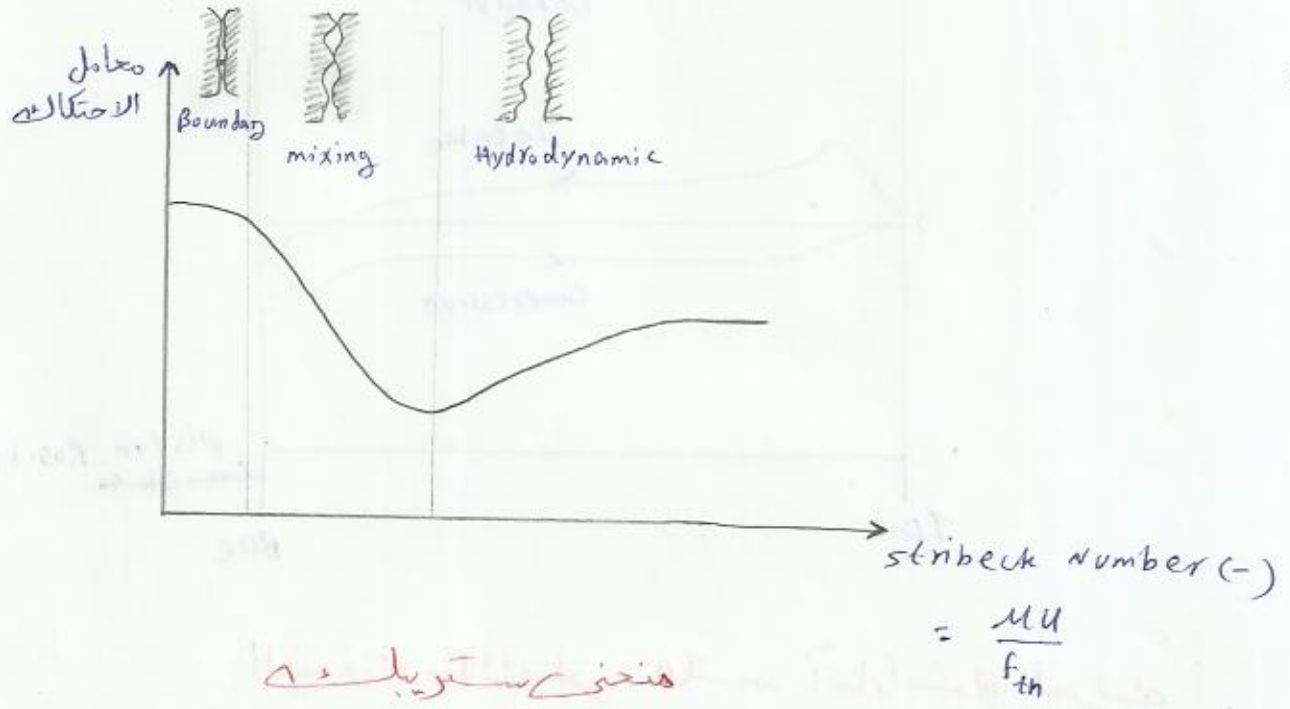 معامل
الاحتكاك
Boundary
mixing
Hydrodynamic
stribeck Number (-)
= μu
f th
منحنى ستريبك